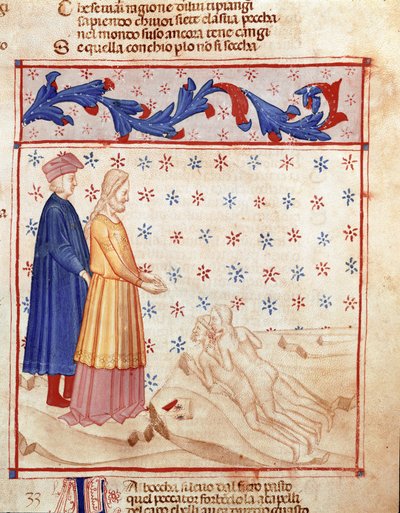 Che se tu a ragione di lui ti piangi
sapiendo chiuoi siete elasua peccha
nel mondo suso ancora tene cangi
Se quella conchio plo nō si seccha
33
A boccha sileuo dal fiero pasto
quel peccator forbēdola acapelli
del capo chelli auea guasto